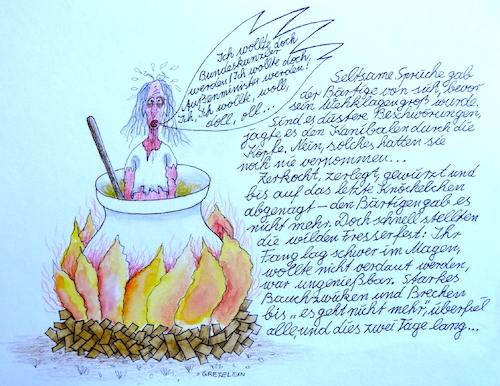 Ich wollte doch
Bundeskanzler
werden! Ich wollte doch,
Außenminister werden!
Ich, ich wollte, woll,
doll, oll...
Seltsame Sprüche gab
der Bärtige von sich, bevor
sein Wehklagen groß wurde.
Sind es düstere Beschwörungen,
jagte es den Kanibalen durch die
Köpfe. Nein, solches hatten sie
noch nie vernommen...
Zerkocht, zerlegt, gewürzt und
bis auf das letzte Knöchelchen
abgenagt – den Bärtigen gab es
nicht mehr. Doch schnell stellten
die wilden Fresser fest: Ihr
Fang lag schwer im Magen,
wollte nicht verdaut werden,
war ungenießbar. Starkes
Bauchzwicken und Brechen
bis „es geht nicht mehr", überfiel
alle, und dies zwei Tage lang...